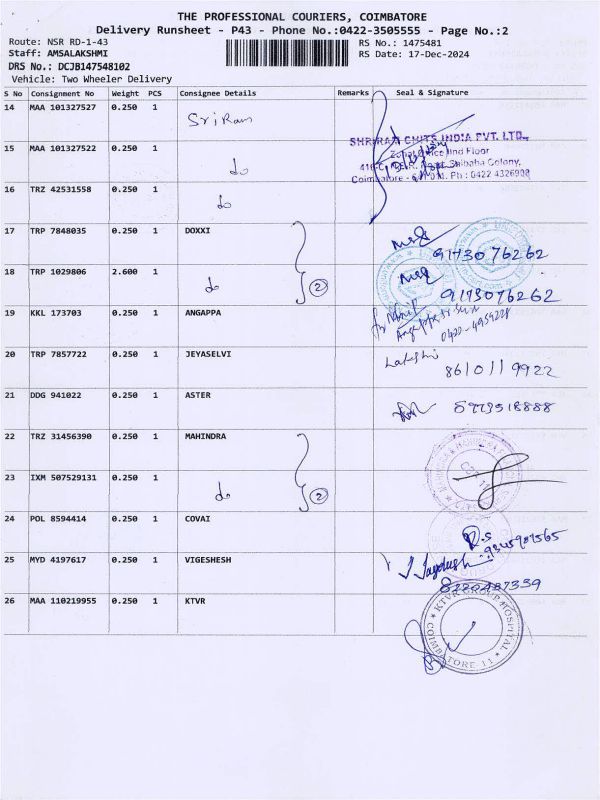 THE PROFESSIONAL COURIERS, COIMBATORE
Delivery Runsheet - P43 - Phone No.:0422-3505555 - Page No.:2
Route: NSR RD-1-43 RS No.: 1475481
Staff: AMSALAKSHMI RS Date: 17-Dec-2024
DRS No.: DCJB147548102
Vehicle: Two Wheeler Delivery
S No Consignment No Weight PCS Consignee Details Remarks Seal & Signature
14 MAA 101327527 0.250 1 Sri Ram
SHRIRAM CHITS INDIA PVT. LTD.,
15 MAA 101327522 0.250 1 do
Zonal Office IInd Floor
Shibaba Colony,
Ph : 0422 4326909
16 TRZ 42531558 0.250 1 do
17 TRP 7848035 0.250 1 DOXXI
9173076262
18 TRP 1029806 2.600 1 do 2
9173076262
19 KKL 173703 0.250 1 ANGAPPA
Angappa
20 TRP 7857722 0.250 1 JEYASELVI
8610119922
21 DDG 941022 0.250 1 ASTER
22 TRZ 31456390 0.250 1 MAHINDRA
23 IXM 507529131 0.250 1 do 2
24 POL 8594414 0.250 1 COVAI
25 MYD 4197617 0.250 1 VIGESHESH
26 MAA 110219955 0.250 1 KTVR
KTVR GROUP HOSPITAL
COIMBATORE 11